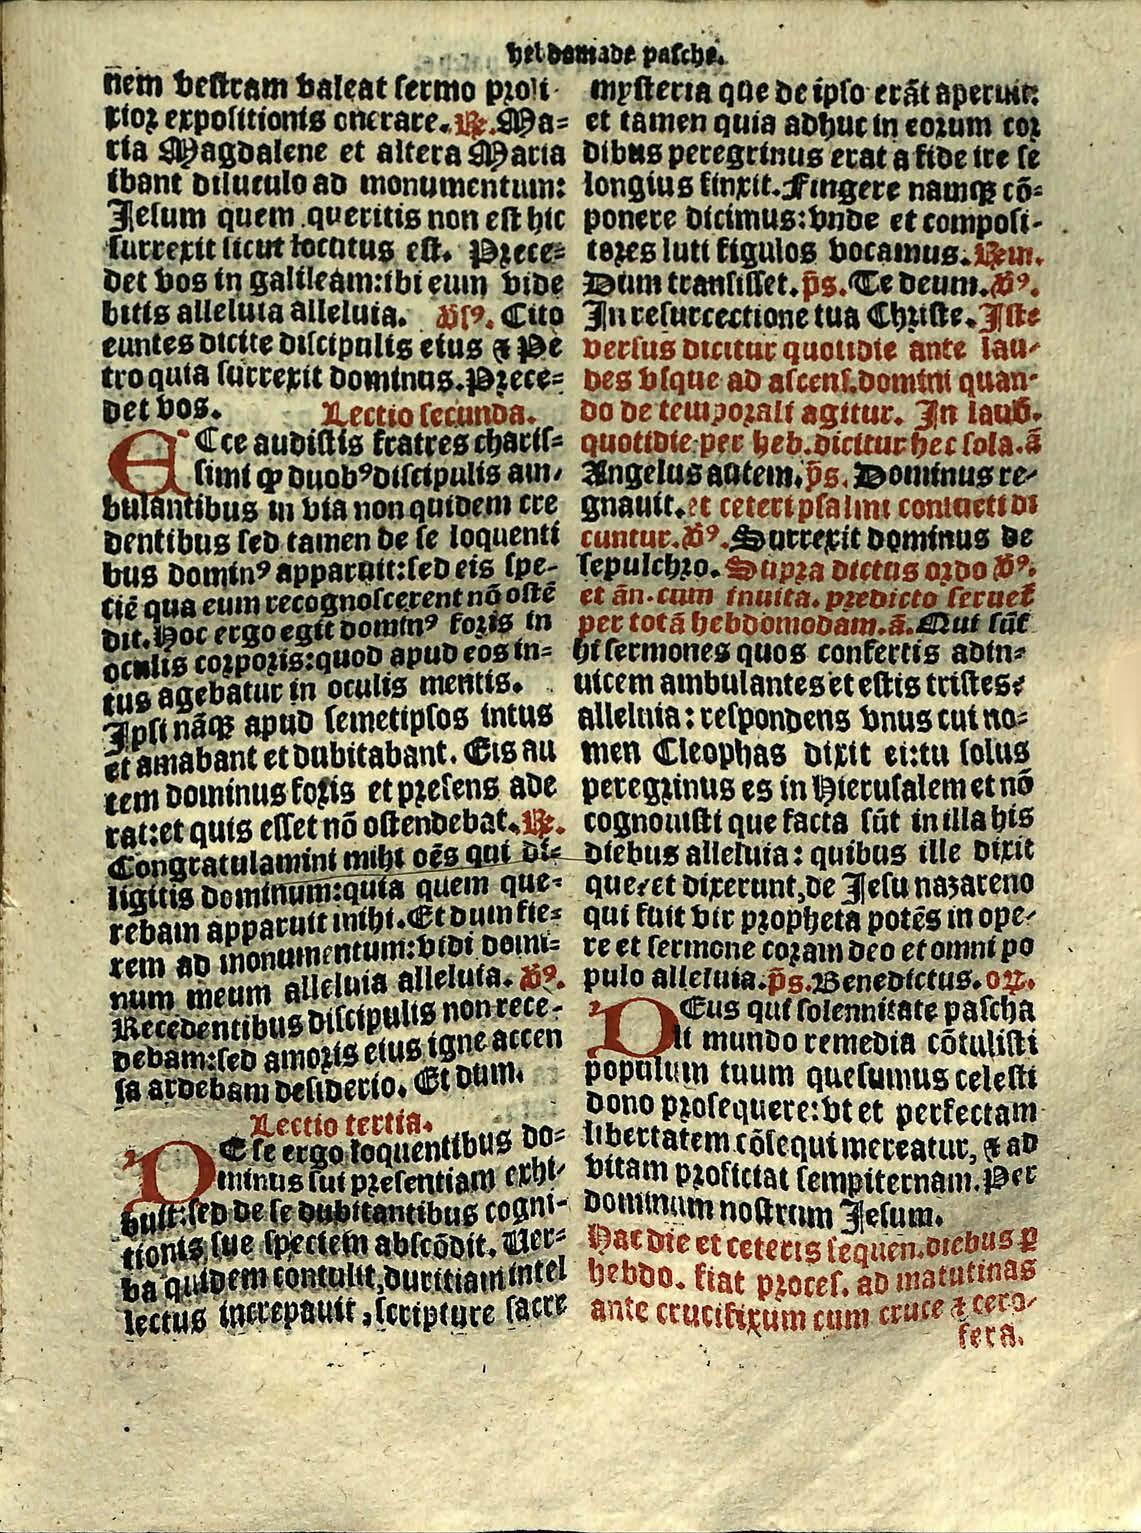 hebdomade pasche.
nem vestram valeat sermo proli
xior expositionis onerare. ℟. Ma=
ria Magdalene et altera Maria
ibant diluculo ad monumentum:
Jesum quem queritis non est hic
surrexit sicut locutus est. Prece=
det vos in galileam: ibi eum vide
bitis alleluia alleluia. ℣sꝰ. Cito
euntes dicite discipulis eius ⁊ Pe
tro quia surrexit dominus. Prece=
det vos. Lectio secunda.
ECce audistis fratres charis=
simi ꝙ duobꝰ discipulis am/
bulantibus in via non quidem cre
dentibus sed tamen de se loquenti
bus dominꝰ apparuit: sed eis spe-
ciē qua eum recognoscerent nō ostē
dit. Hoc ergo egit dominꝰ foris in
oculis corporis: quod apud eos in=
tus agebatur in oculis mentis.
Ipsi nāqꝫ apud semetipsos intus
et amabant et dubitabant. Eis au
tem dominus foris et presens ade
rat: et quis esset nō ostendebat. ℟.
Congratulamini mihi oēs qui di=
ligitis dominum: quia quem que=
rebam apparuit mihi. Et dum fle=
rem ad monumentum: vidi domi=
num meum alleluia alleluia. ℣ꝰ.
Recedentibus discipulis non rece=
debam: sed amoris eius igne accen
sa ardebam desiderio. Et dum.
Lectio tertia.
DE se ergo loquentibus do=
minus sui presentiam exhi/
buit: sed de se dubitantibus cogni-
tionis sue speciem abscōdit. Ver=
ba quidem contulit, duritiam intel
lectus increpauit, scripture sacre
mysteria que de ipso erāt aperuit:
et tamen quia adhuc in eorum cor
dibus peregrinus erat a fide ire se
longius finxit. Fingere namqꝫ cō=
ponere dicimus: vnde et composi-
tores luti figulos vocamus. ℟m.
Dum transisset. p̄s. Te deum. ℣ꝰ.
In resurrectione tua Christe. Iste
versus dicitur quotidie ante lau/
des vsque ad ascens. domini quan-
do de temporali agitur. In laud̄.
quotidie per heb. dicitur hec sola. ā
Angelus autem. p̄s. Dominus re/
gnauit. et ceteri psalmi consueti di
cuntur. ℣ꝰ. Surrexit dominus de
sepulchro. Supra dictus ordo ℣ꝰ.
et ān. cum inuita. predicto seruet̄
per totā hebdomodam. ā. Qui sūt
hi sermones quos confertis adin=
uicem ambulantes et estis tristes:
alleluia: respondens vnus cui no=
men Cleophas dixit ei: tu solus
peregrinus es in Hierusalem et nō
cognouisti que facta sūt in illa his
diebus alleluia: quibus ille dixit
que: et dixerunt, de Jesu nazareno
qui fuit vir propheta potēs in ope/
re et sermone coram deo et omni po
pulo alleluia. p̄s. Benedictus. oꝛ.
DEus qui solennitate pascha
li mundo remedia cōtulisti
populum tuum quesumus celesti
dono prosequere: vt et perfectam
libertatem cōsequi mereatur, ⁊ ad
vitam proficiat sempiternam. Per
dominum nostrum Jesum.
Hac die et ceteris sequen. diebus ꝑ
hebdo. fiat proces. ad matutinas
ante crucifixum cum cruce ⁊ cero/
fera.